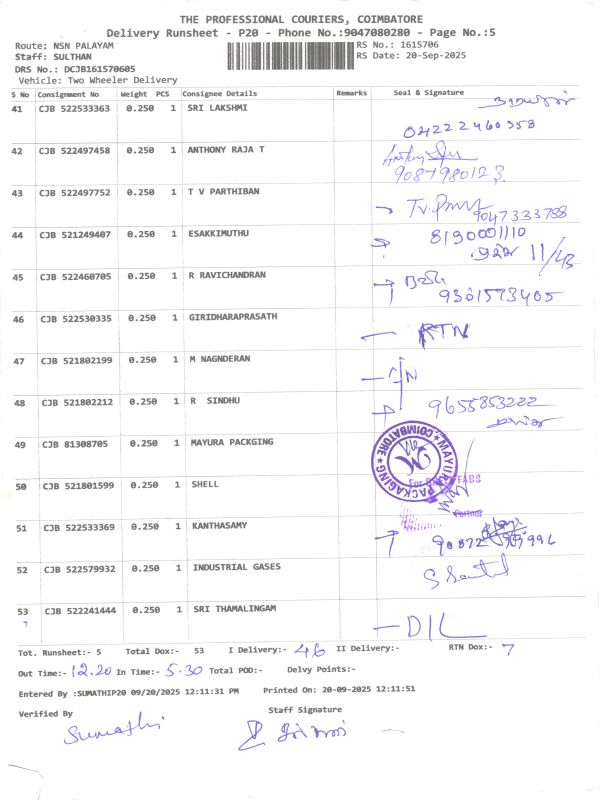 THE PROFESSIONAL COURIERS, COIMBATORE
Delivery Runsheet - P20 - Phone No.:9047080280 - Page No.:5
Route; NSN PALAYAM RS No.: 1615706
Staff: SULTHAN RS Date: 20-Sep-2025
DRS No.: DCJB161570605
Vehicle: Two Wheeler Delivery
S No Consignment No Weight PCS Consignee Details Remarks Seal & Signature
41 CJB 522533363 0.250 1 SRI LAKSHMI
04222460358
42 CJB 522497458 0.250 1 ANTHONY RAJA T
9087980123
43 CJB 522497752 0.250 1 T V PARTHIBAN
9047333788
44 CJB 521249407 0.250 1 ESAKKIMUTHU 8190001110
11/43
45 CJB 522460705 0.250 1 R RAVICHANDRAN
9361573405
46 CJB 522530335 0.250 1 GIRIDHARAPRASATH
RTN
47 CJB 521802199 0.250 1 M NAGNDERAN
48 CJB 521802212 0.250 1 R SINDHU 9655853222
49 CJB 81308705 0.250 1 MAYURA PACKGING
MAYURA PACKAGING COIMBATORE
50 CJB 521801599 0.250 1 SHELL
Partner
51 CJB 522533369 0.250 1 KANTHASAMY
52 CJB 522579932 0.250 1 INDUSTRIAL GASES
53 CJB 522241444 0.250 1 SRI THAMALINGAM
?
D/L
Tot. Runsheet:- 5 Total Dox:- 53 I Delivery:- 46 II Delivery:- RTN Dox:- 7
Out Time:- 12.20 In Time:- 5.30 Total POD:- Delvy Points:-
Entered By :SUMATHIP20 09/20/2025 12:11:31 PM Printed On: 20-09-2025 12:11:51
Verified By Staff Signature
Sumathi